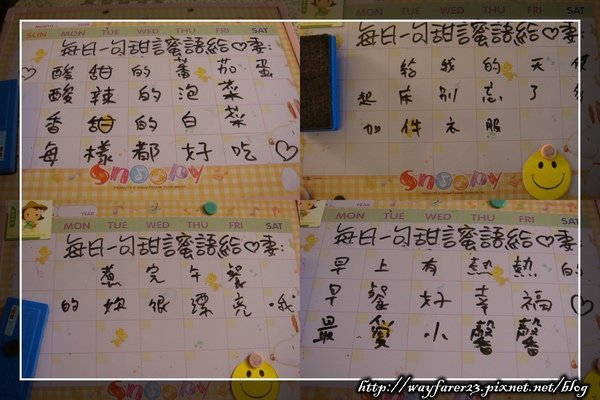 MONTH YEAR
SUN MON TUE WED THU FRI SAT
每日一句甜言蜜語給♡妻:
♡酸甜的蕃茄蛋
酸辣的泡菜
香甜的白菜
每樣都好吃♡
Snoopy
MON TUE WED THU FRI SAT
每日一句甜言蜜語給♡妻:
給我的天使
起床別忘了
加件衣服
Snoopy
YEAR
MON TUE WED THU FRI SAT
每日一句甜言蜜語給♡妻:
煮完午餐
的妳很漂亮哦
Snoopy
YEAR
MON TUE WED THU FRI SAT
每日一句甜言蜜語給♡妻:
早上有熱熱的
早餐好幸福♡
最愛小馨馨
http://wayfarer23.pixnet.net/blog